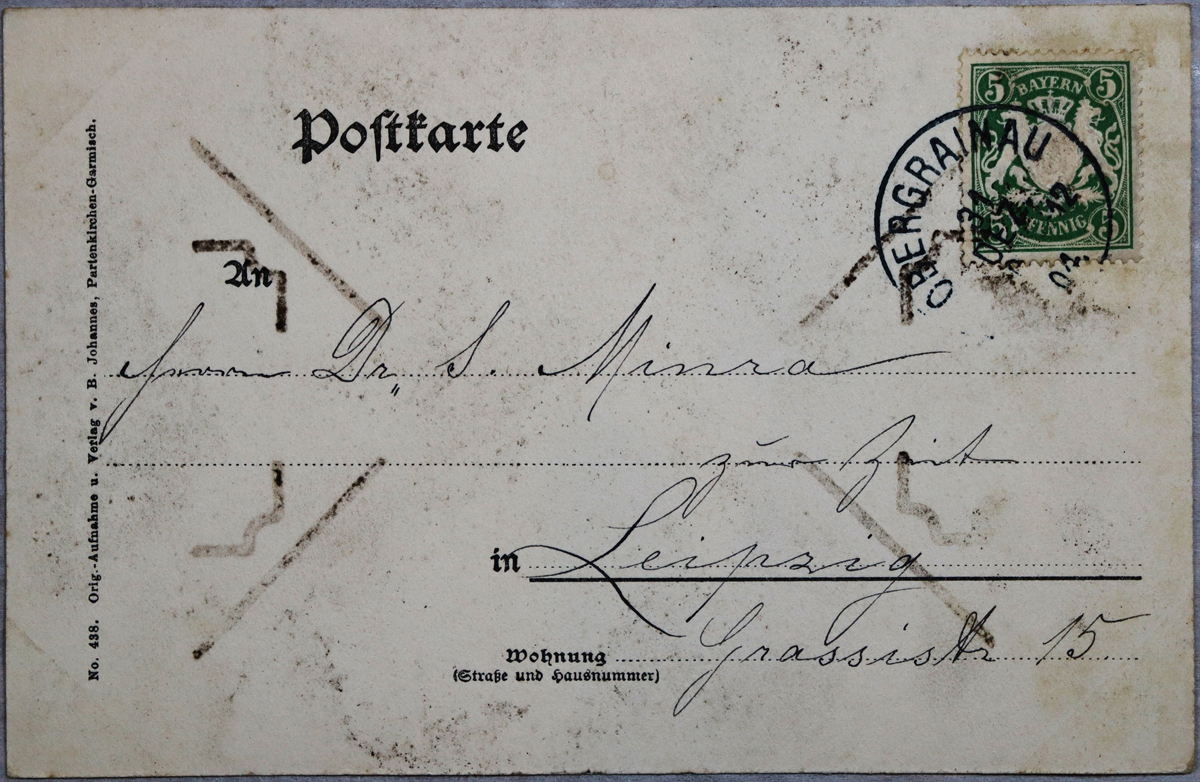 Postkarte
5 5
BAYERN
5 5
PFENNIG
OBERGRAINAU
31
DEZ
12
02
An
Herrn Dr. S. Minra
zur Zeit
in Leipzig
Wohnung Grassistr 15.
(Straße und Hausnummer)
No. 438. Orig.-Aufnahme u. Verlag v. B. Johannes, Partenkirchen-Garmisch.